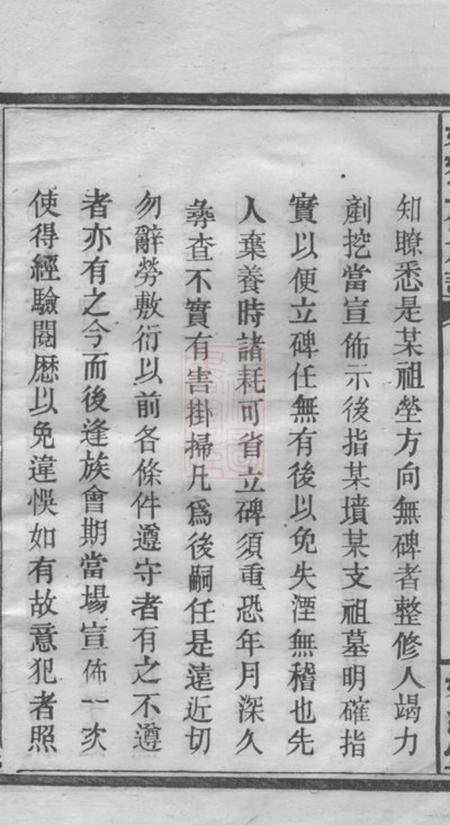 知瞭悉是某祖塋方向無碑者整修人竭力
剷挖當宣佈示後指某墳某支祖墓明確指
實以便立碑任無有後以免失湮無稽也先
人棄養時諸耗可省立碑須重恐年月深久
彝查不實有害掛掃凡為後嗣任是遠近切
勿辭勞敷衍以前各條件遵守者有之不遵
者亦有之今而後逢族會期當場宣佈一次
使得經驗閱歷以免違悞如有故意犯者照